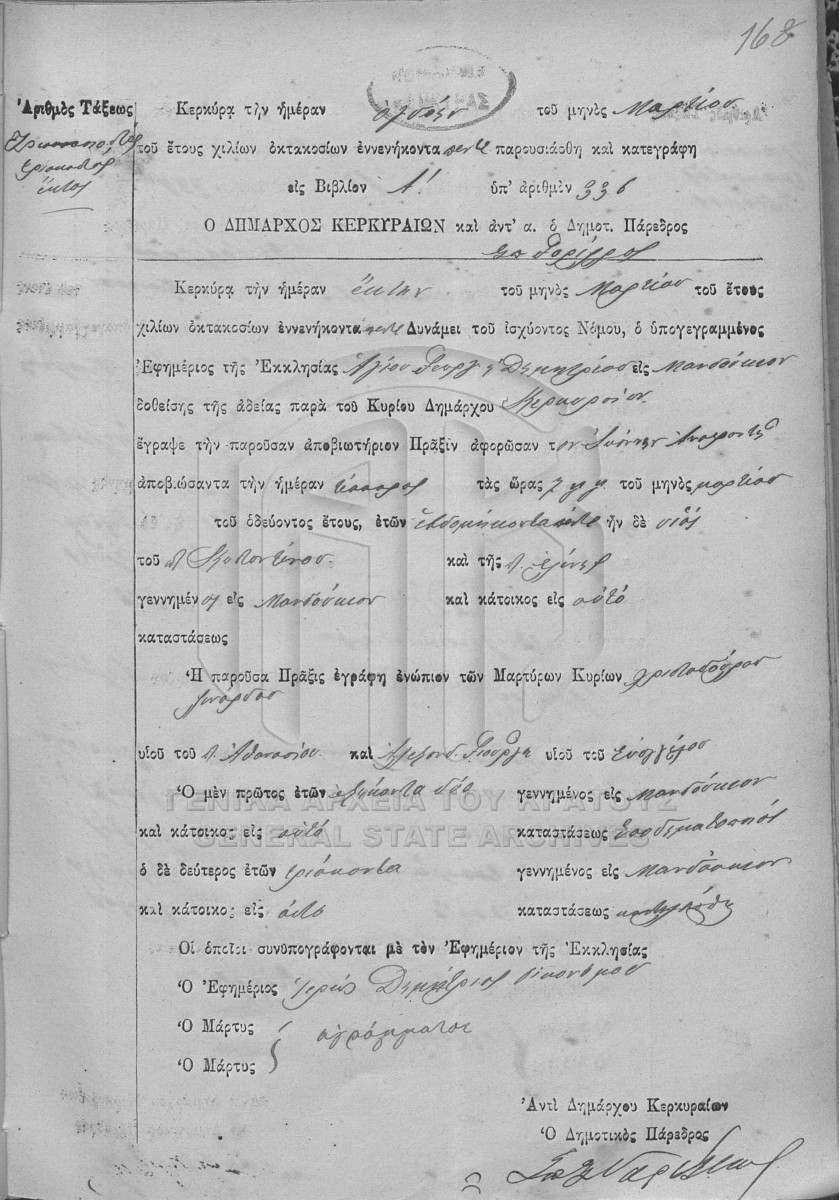 168
Ἀριθμὸς Τάξεως
τριακοστὸς
ἕκτος
Κερκύρᾳ τὴν ἡμέραν ὀγδόην τοῦ μηνὸς Μαρτίου
τοῦ ἔτους χιλίων ὀκτακοσίων ἐννενήκοντα πέντε παρουσιάσθη καὶ κατεγράφη
εἰς Βιβλίον Α' ὑπ' ἀριθμὸν 336
Ο ΔΗΜΑΡΧΟΣ ΚΕΡΚΥΡΑΙΩΝ καὶ ἀντ' α. ὁ Δημοτ. Πάρεδρος
Κερκύρᾳ τὴν ἡμέραν ἕκτην τοῦ μηνὸς Μαρτίου τοῦ ἔτους
χιλίων ὀκτακοσίων ἐννενήκοντα πέντε Δυνάμει τοῦ ἰσχύοντος Νόμου, ὁ ὑπογεγραμμένος
Ἐφημέριος τῆς Ἐκκλησίας Ἁγίου Γεωργ Δημητρίου εἰς Μανδούκιον
δοθείσης τῆς ἀδείας παρὰ τοῦ Κυρίου Δημάρχου Κερκυραίων
ἔγραψε τὴν παροῦσαν ἀποβιωτήριον Πρᾶξιν ἀφορῶσαν τὸν Ἰωάννην
ἀποβιώσαντα τὴν ἡμέραν τέσσαρας τὰς ὥρας 7 μ.μ. τοῦ μηνὸς μαρτίου
τοῦ ὁδεύοντος ἔτους, ἐτῶν ἑβδομήκοντα πέντε ἦν δὲ υἱὸς
τοῦ π. Κωνσταντίνου καὶ τῆς π. Ἑλένης
γεννημένος εἰς Μανδούκιον καὶ κάτοικος εἰς αὐτό
καταστάσεως
Ἡ παροῦσα Πρᾶξις ἐγράφη ἐνώπιον τῶν Μαρτύρων Κυρίων Χριστοδούλου
υἱοῦ τοῦ π. Ἀθανασίου καὶ Ἀλεξανδ. Γεωργ υἱοῦ τοῦ Εὐαγγέλου
Ὁ μὲν πρῶτος ἐτῶν ἑξήκοντα δύο γεννημένος εἰς Μανδούκιον
καὶ κάτοικος εἰς αὐτό καταστάσεως
ὁ δὲ δεύτερος ἐτῶν τριάκοντα γεννημένος εἰς Μανδούκιον
καὶ κάτοικος εἰς αὐτό καταστάσεως
Οἱ ὁποῖοι συνυπογράφονται μὲ τὸν Ἐφημέριον τῆς Ἐκκλησίας
Ὁ Ἐφημέριος Ἱερεὺς Δημήτριος Οἰκονόμου
Ὁ Μάρτυς ἀγράμματοι
Ὁ Μάρτυς
Ἀντὶ Δημάρχου Κερκυραίων
Ὁ Δημοτικὸς Πάρεδρος
ΓΕΝΙΚΑ ΑΡΧΕΙΑ ΤΟΥ ΚΡΑΤΟΥΣ
GENERAL STATE ARCHIVES